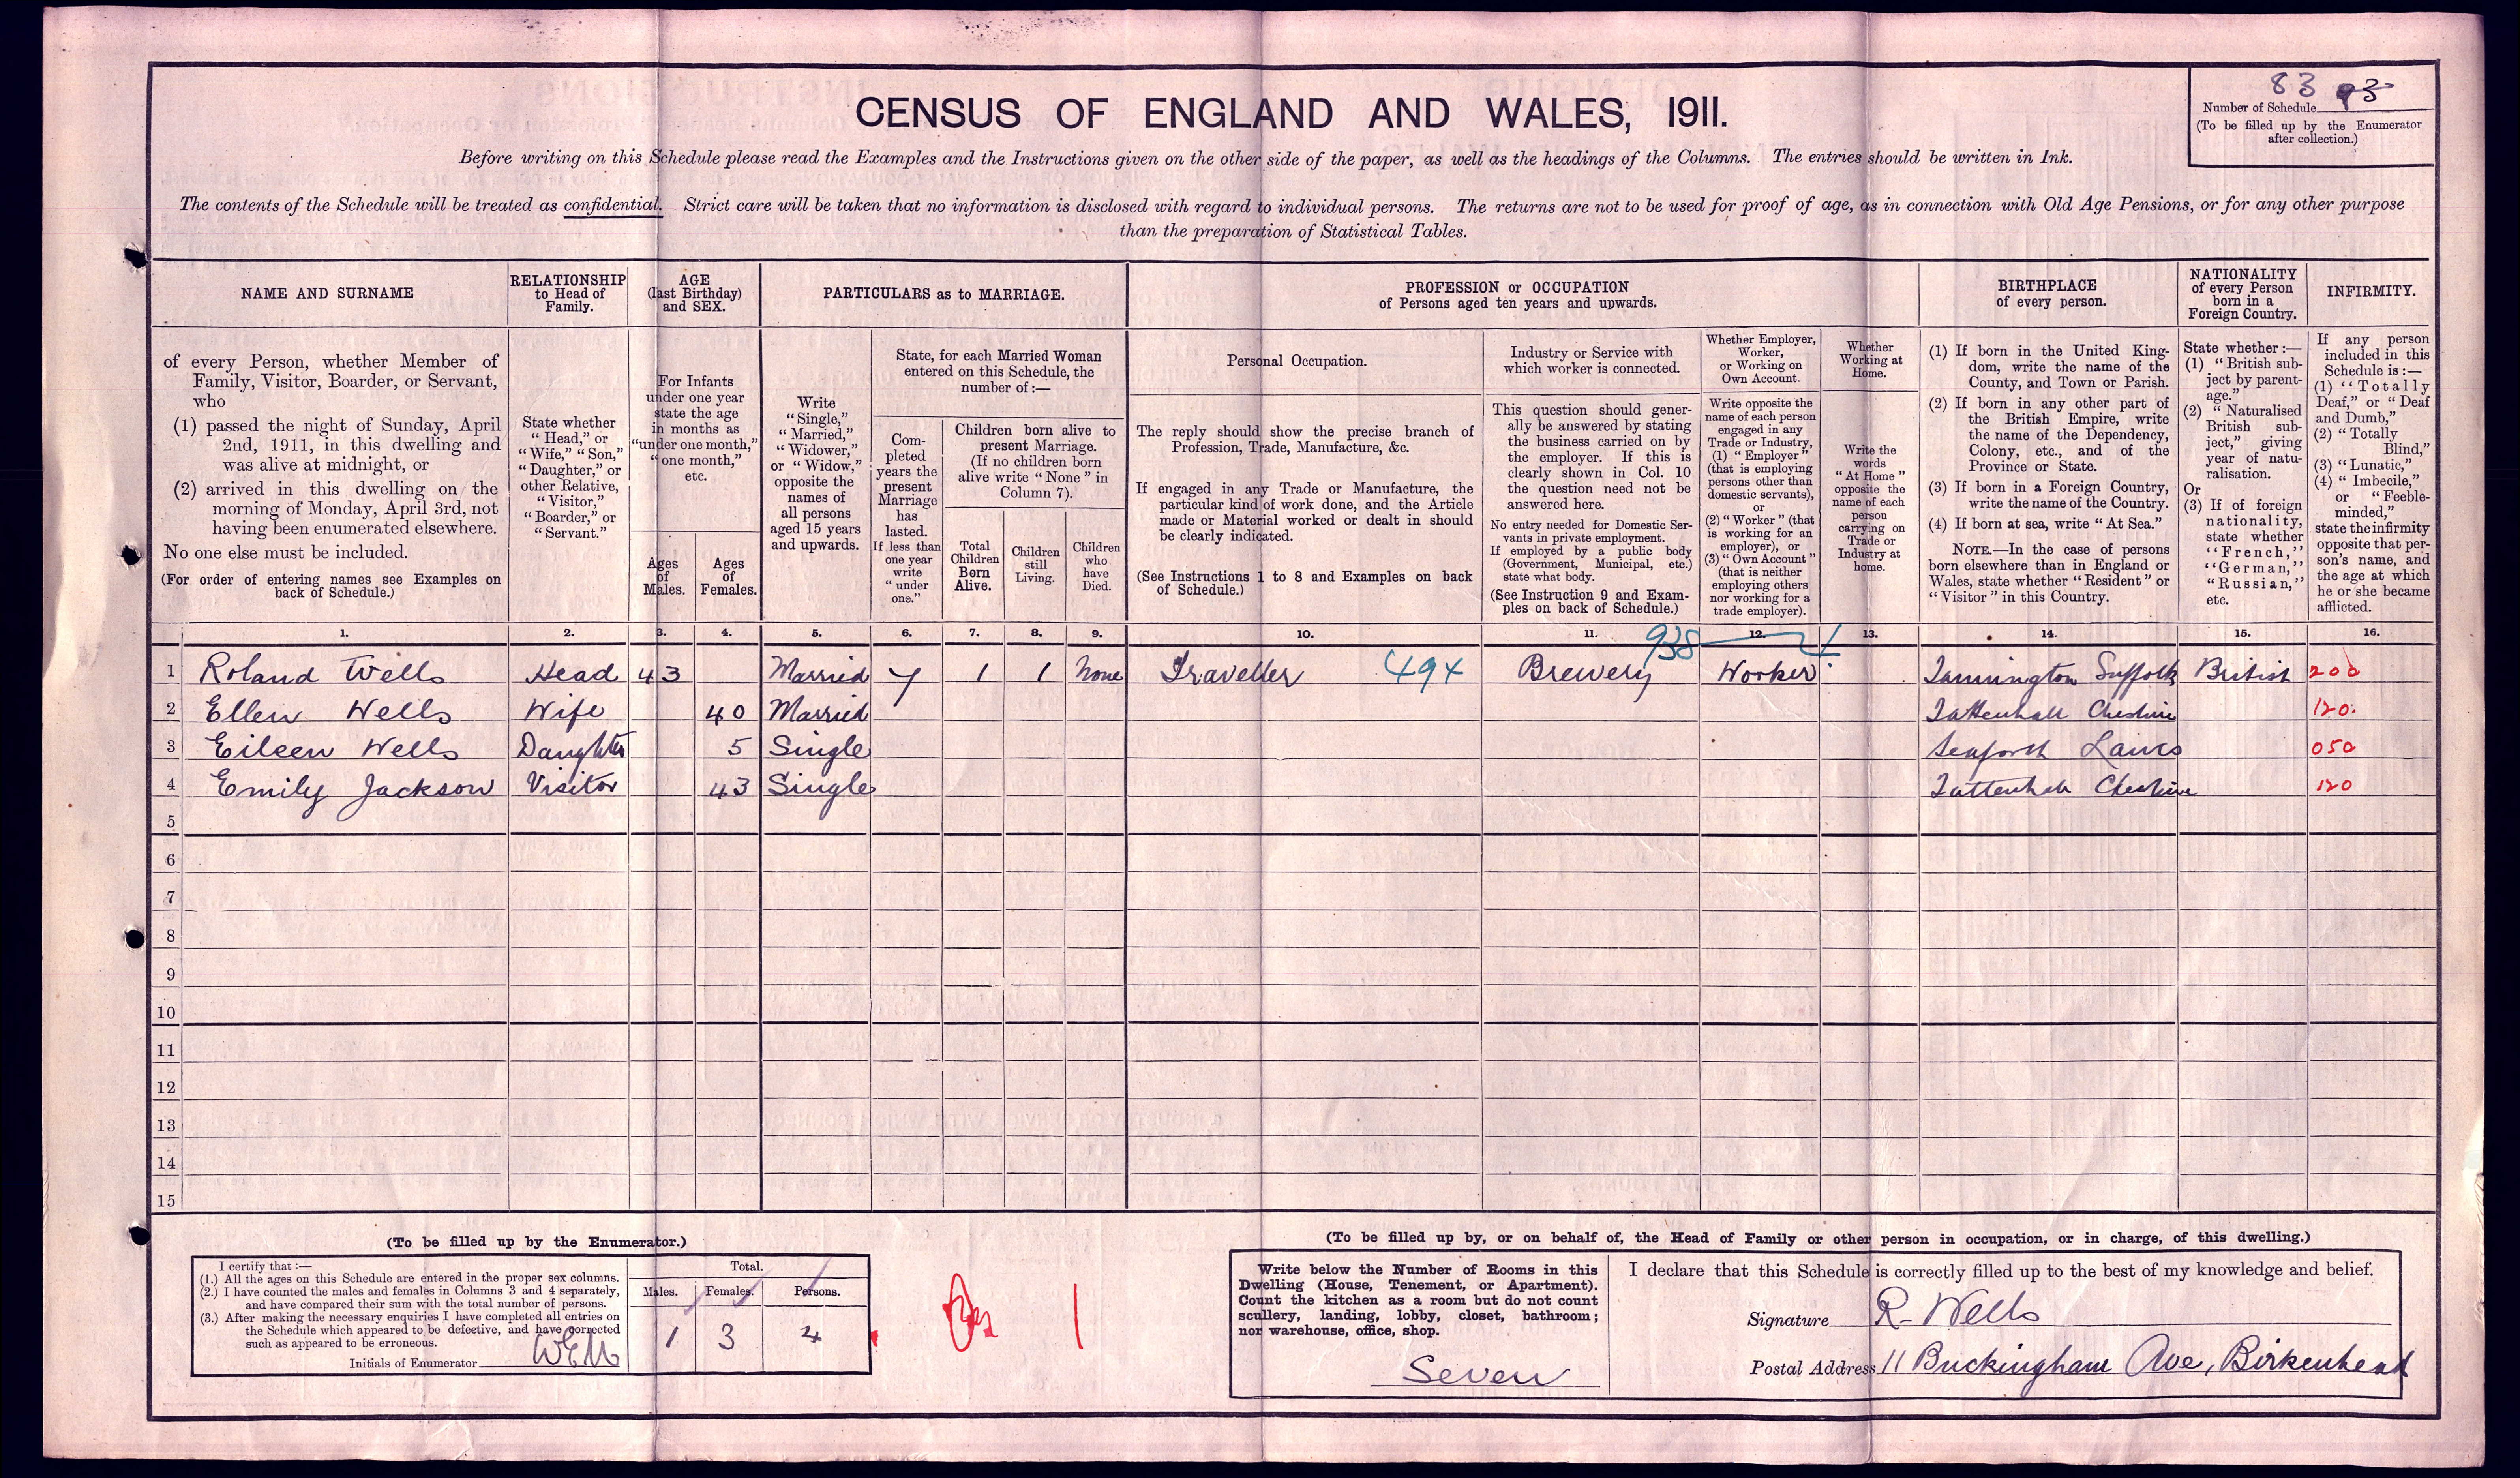 83 93
Number of Schedule
(To be filled up by the Enumerator
after collection.)
CENSUS OF ENGLAND AND WALES, 1911.
Before writing on this Schedule please read the Examples and the Instructions given on the other side of the paper, as well as the headings of the Columns. The entries should be written in Ink.
The contents of the Schedule will be treated as confidential. Strict care will be taken that no information is disclosed with regard to individual persons. The returns are not to be used for proof of age, as in connection with Old Age Pensions, or for any other purpose
than the preparation of Statistical Tables.
NAME AND SURNAME
of every Person, whether Member of
Family, Visitor, Boarder, or Servant,
who
(1) passed the night of Sunday, April
2nd, 1911, in this dwelling and
was alive at midnight, or
(2) arrived in this dwelling on the
morning of Monday, April 3rd, not
having been enumerated elsewhere.
No one else must be included.
(For order of entering names see Examples on
back of Schedule.)
RELATIONSHIP
to Head of
Family.
State whether
"Head," or
"Wife," "Son,"
"Daughter," or
other Relative,
"Visitor,"
"Boarder," or
"Servant."
AGE
(last Birthday)
and SEX.
For Infants
under one year
state the age
in months as
"under one month,"
"one month,"
etc.
Ages
of
Males.
Ages
of
Females.
PARTICULARS as to MARRIAGE.
Write
"Single,"
"Married,"
"Widower,"
or "Widow,"
opposite the
names of
all persons
aged 15 years
and upwards.
State, for each Married Woman
entered on this Schedule, the
number of:—
Com-
pleted
years the
present
Marriage
has
lasted.
If less than
one year
write
"under
one."
Children born alive to
present Marriage.
(If no children born
alive write "None" in
Column 7).
Total
Children
Born
Alive.
Children
still
Living.
Children
who
have
Died.
PROFESSION or OCCUPATION
of Persons aged ten years and upwards.
Personal Occupation.
The reply should show the precise branch of
Profession, Trade, Manufacture, &c.
If engaged in any Trade or Manufacture, the
particular kind of work done, and the Article
made or Material worked or dealt in should
be clearly indicated.
(See Instructions 1 to 8 and Examples on back
of Schedule.)
Industry or Service with
which worker is connected.
This question should gener-
ally be answered by stating
the business carried on by
the employer. If this is
clearly shown in Col. 10
the question need not be
answered here.
No entry needed for Domestic Ser-
vants in private employment.
If employed by a public body
(Government, Municipal, etc.)
state what body.
(See Instruction 9 and Exam-
ples on back of Schedule.)
Whether Employer,
Worker,
or Working on
Own Account.
Write opposite the
name of each person
engaged in any
Trade or Industry,
(1) "Employer"
(that is employing
persons other than
domestic servants),
or
(2) "Worker" (that
is working for an
employer), or
(3) "Own Account"
(that is neither
employing others
nor working for a
trade employer).
Whether
Working at
Home.
Write the
words
"At Home"
opposite the
name of each
person
carrying on
Trade or
Industry at
home.
BIRTHPLACE
of every person.
(1) If born in the United King-
dom, write the name of the
County, and Town or Parish.
(2) If born in any other part of
the British Empire, write
the name of the Dependency,
Colony, etc., and of the
Province or State.
(3) If born in a Foreign Country,
write the name of the Country.
(4) If born at sea, write "At Sea."
NOTE.—In the case of persons
born elsewhere than in England or
Wales, state whether "Resident" or
"Visitor" in this Country.
NATIONALITY
of every Person
born in a
Foreign Country.
State whether:—
(1) "British sub-
ject by parent-
age."
(2) "Naturalised
British sub-
ject," giving
year of natu-
ralisation.
Or
(3) If of foreign
nationality,
state whether
"French,"
"German,"
"Russian,"
etc.
INFIRMITY.
If any person
included in this
Schedule is:—
(1) "Totally
Deaf," or "Deaf
and Dumb,"
(2) "Totally
Blind,"
(3) "Lunatic,"
(4) "Imbecile,"
or "Feeble-
minded,"
state the infirmity
opposite that per-
son's name, and
the age at which
he or she became
afflicted.
1. 2. 3. 4. 5. 6. 7. 8. 9. 10. 11. 12. 13. 14. 15. 16.
938 4
1 Roland Wells Head 43 Married 7 1 1 None Traveller 494 Brewery Worker Tannington Suffolk British 200
2 Ellen Wells Wife 40 Married Tattenhall Cheshire 120
3 Eileen Wells Daughter 5 Single Seaforth Lancs 050
4 Emily Jackson Visitor 43 Single Tattenhall Cheshire 120
5
6
7
8
9
10
11
12
13
14
15
(To be filled up by the Enumerator.)
I certify that:—
(1.) All the ages on this Schedule are entered in the proper sex columns.
(2.) I have counted the males and females in Columns 3 and 4 separately,
and have compared their sum with the total number of persons.
(3.) After making the necessary enquiries I have completed all entries on
the Schedule which appeared to be defective, and have corrected
such as appeared to be erroneous.
Initials of Enumerator
Total.
Males. Females. Persons.
1 3 4
(To be filled up by, or on behalf of, the Head of Family or other person in occupation, or in charge, of this dwelling.)
Write below the Number of Rooms in this
Dwelling (House, Tenement, or Apartment).
Count the kitchen as a room but do not count
scullery, landing, lobby, closet, bathroom;
nor warehouse, office, shop.
Seven
I declare that this Schedule is correctly filled up to the best of my knowledge and belief.
Signature R. Wells
Postal Address 11 Buckingham Ave, Birkenhead